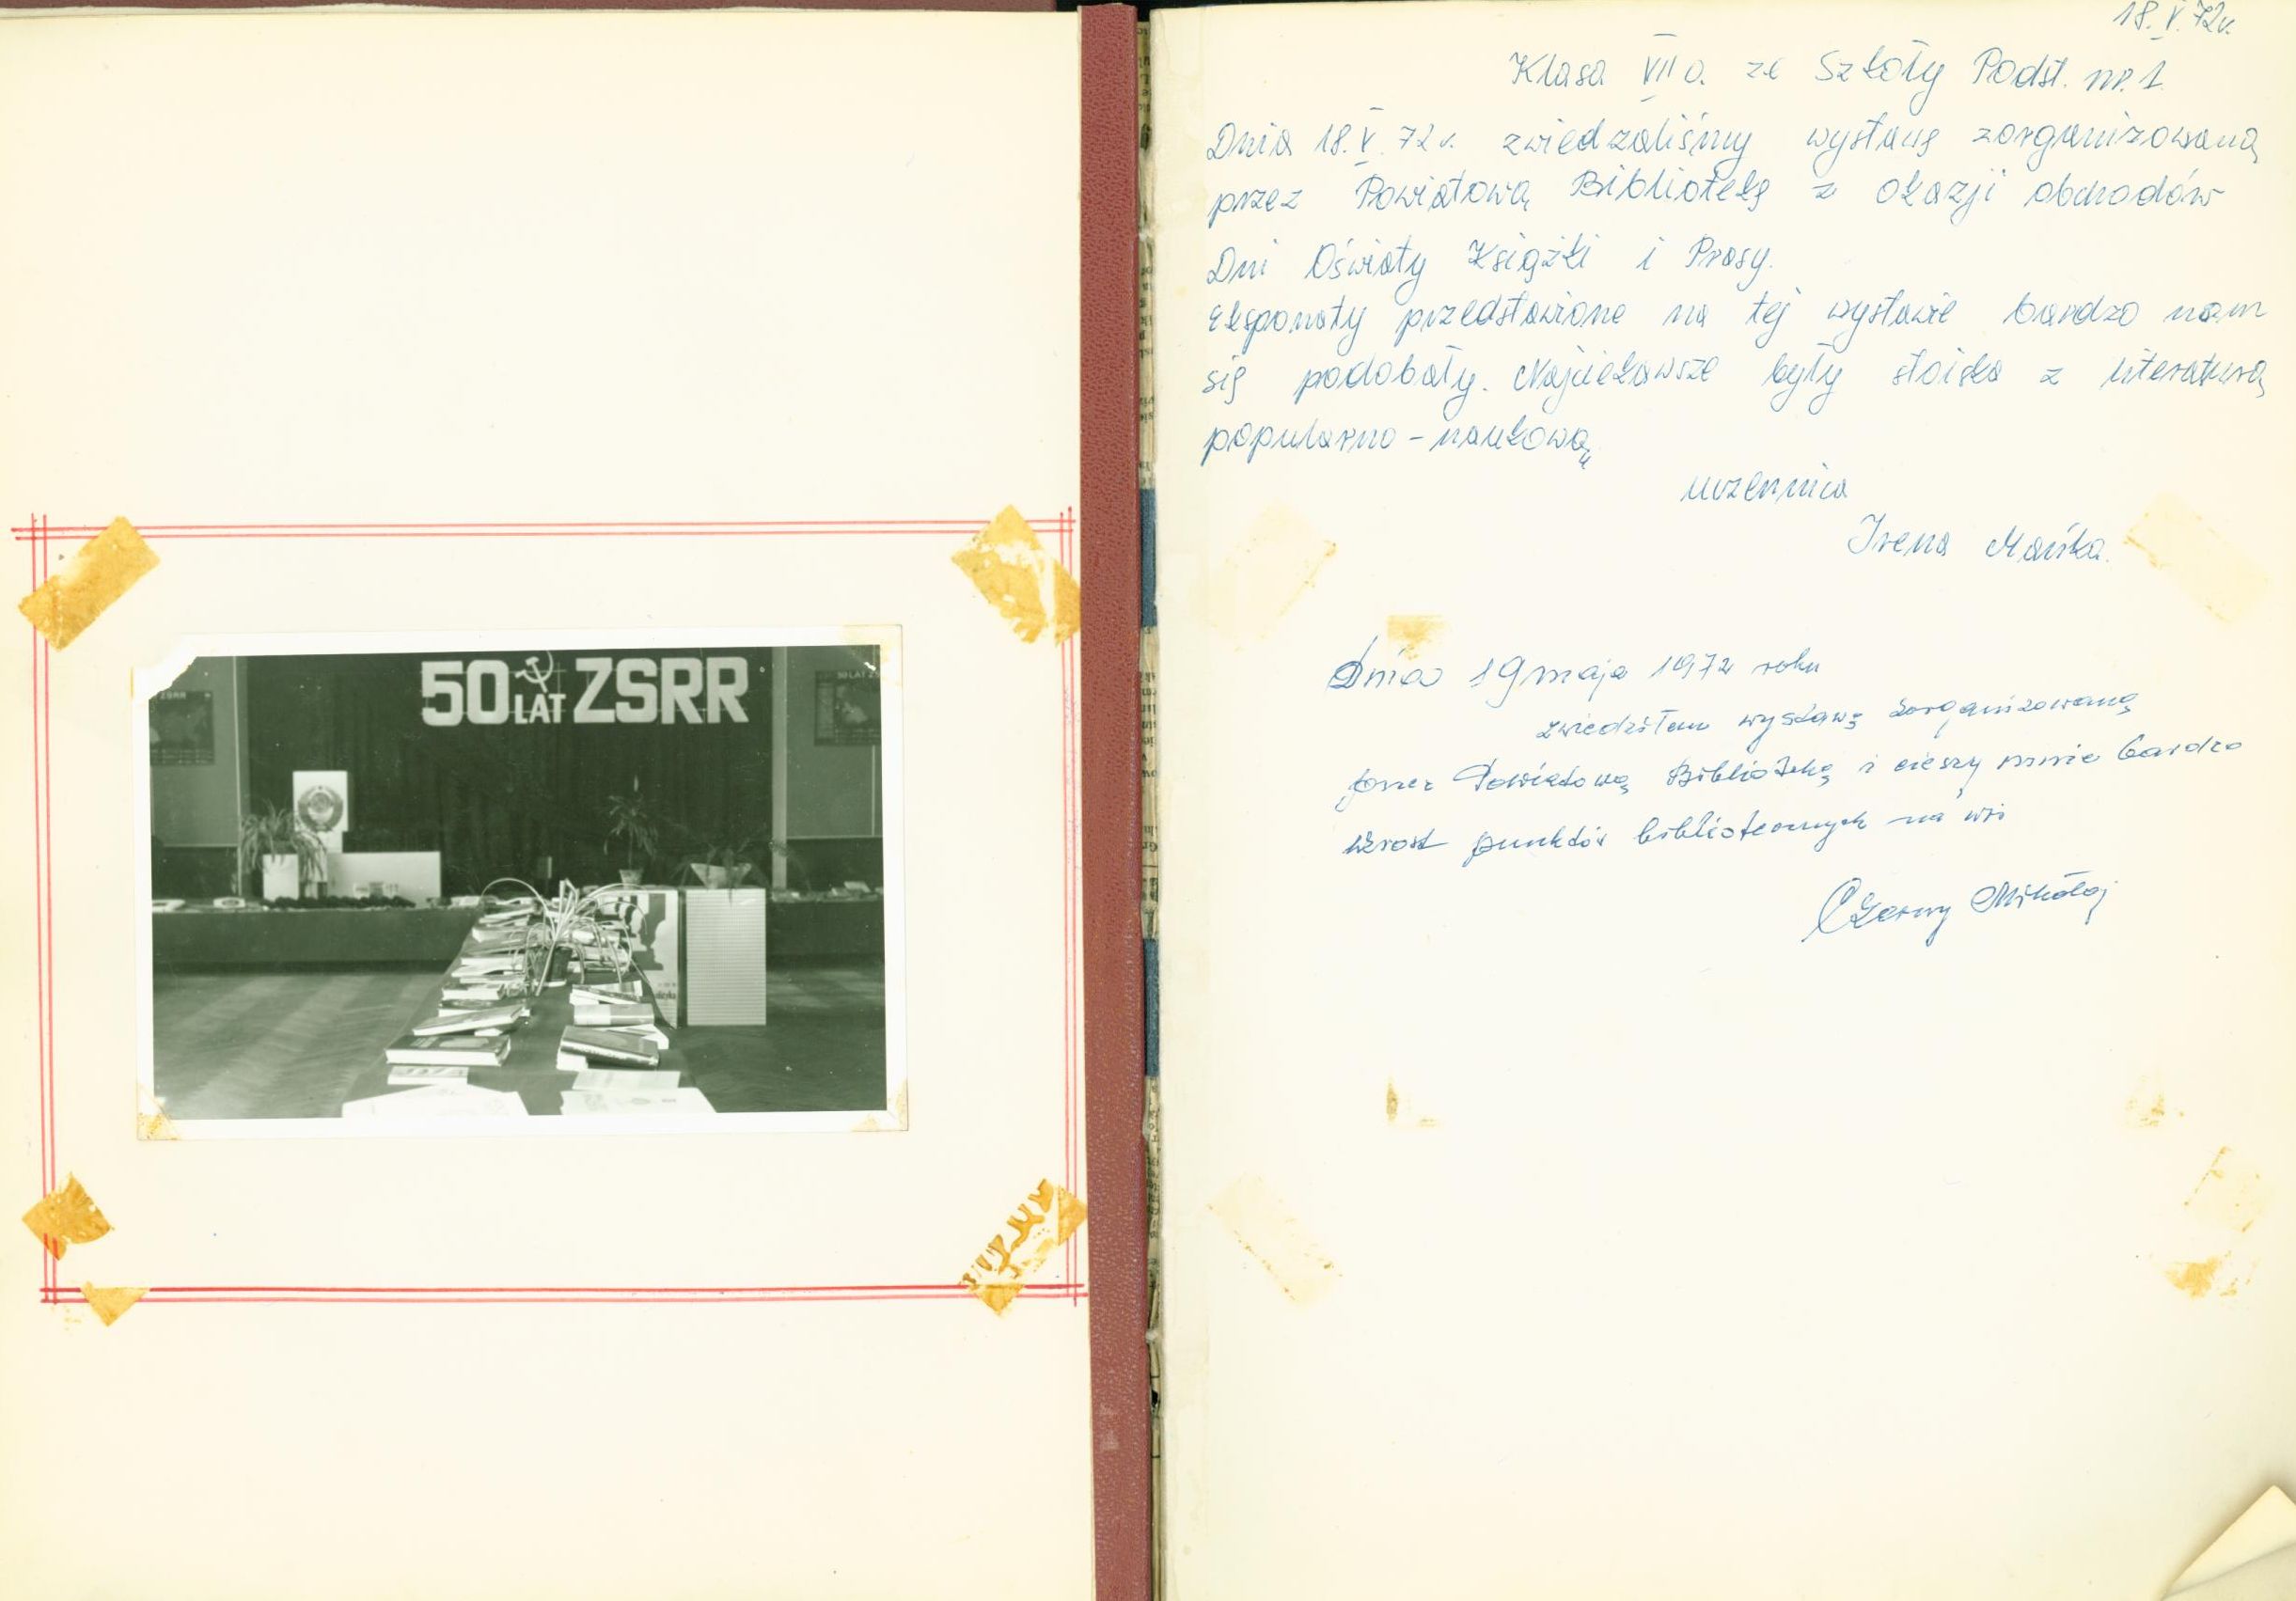 50 LAT ZSRR
ZSRR
50 LAT ZS
18. V. 72r.
Klasa VII a. ze Szkoły Podst. nr. 1.
Dnia 18. V. 72 r. zwiedzaliśmy wystawę zorganizowaną
przez Powiatową Bibliotekę z okazji obchodów
Dni Oświaty Książki i Prasy.
Eksponaty przedstawione na tej wystawie bardzo nam
się podobały. Najciekawsze były stoiska z literaturą
popularno-naukową
uczennica
Irena Mańka.
Dnia 19 maja 1972 roku
zwiedziłem wystawę zorganizowaną
przez Powiatową Bibliotekę i cieszy mnie bardzo
wzrost punktów bibliotecznych na wsi
Czarny Mikołaj